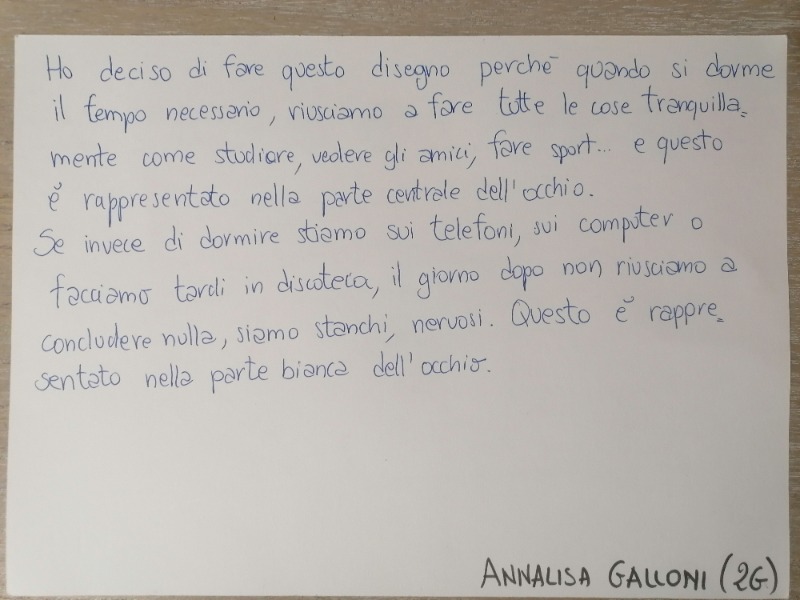 Ho deciso di fare questo disegno perchè quando si dorme
il tempo necessario, riusciamo a fare tutte le cose tranquilla=
mente come studiare, vedere gli amici, fare sport... e questo
è rappresentato nella parte centrale dell'occhio.
Se invece di dormire stiamo sui telefoni, sui computer o
facciamo tardi in discoteca, il giorno dopo non riusciamo a
concludere nulla, siamo stanchi, nervosi. Questo è rappre=
sentato nella parte bianca dell'occhio.
ANNALISA GALLONI (2G)